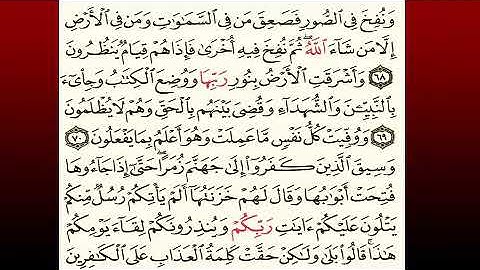 وَنُفِخَ فِى ٱلصُّورِ فَصَعِقَ مَن فِى ٱلسَّمَٰوَٰتِ وَمَن فِى ٱلْأَرْضِ
إِلَّا مَن شَآءَ ٱللَّهُ ۖ ثُمَّ نُفِخَ فِيهِ أُخْرَىٰ فَإِذَا هُمْ قِيَامٌ يَنظُرُونَ
٦٨ وَأَشْرَقَتِ ٱلْأَرْضُ بِنُورِ رَبِّهَا وَوُضِعَ ٱلْكِتَٰبُ وَجِا۟ىٓءَ
بِٱلنَّبِيِّـۧنَ وَٱلشُّهَدَآءِ وَقُضِىَ بَيْنَهُم بِٱلْحَقِّ وَهُمْ لَا يُظْلَمُونَ
٦٩ وَوُفِّيَتْ كُلُّ نَفْسٍ مَّا عَمِلَتْ وَهُوَ أَعْلَمُ بِمَا يَفْعَلُونَ ٧٠
وَسِيقَ ٱلَّذِينَ كَفَرُوٓا۟ إِلَىٰ جَهَنَّمَ زُمَرًا ۖ حَتَّىٰٓ إِذَا جَآءُوهَا
فُتِحَتْ أَبْوَٰبُهَا وَقَالَ لَهُمْ خَزَنَتُهَآ أَلَمْ يَأْتِكُمْ رُسُلٌ مِّنكُمْ
يَتْلُونَ عَلَيْكُمْ ءَايَٰتِ رَبِّكُمْ وَيُنذِرُونَكُمْ لِقَآءَ يَوْمِكُمْ
هَٰذَا ۚ قَالُوا۟ بَلَىٰ وَلَٰكِنْ حَقَّتْ كَلِمَةُ ٱلْعَذَابِ عَلَى ٱلْكَٰفِرِينَ